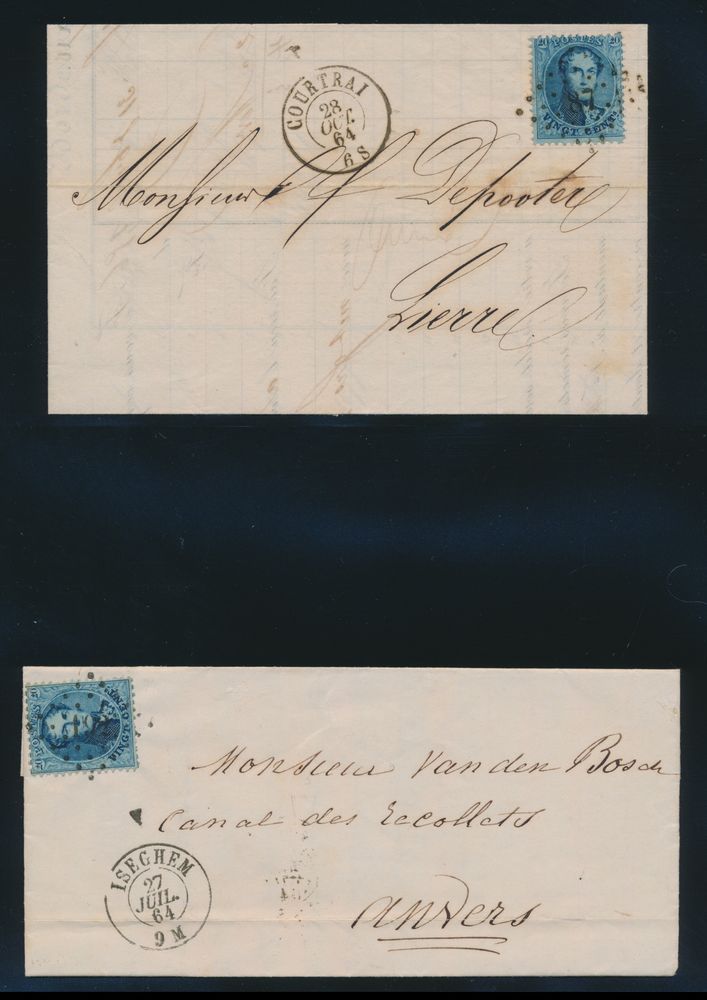 COURTRAI
28
OCT.
64
6 S
20 POSTES 20
VINGT CENT.
Monsieur Depooter
Lierre
20 POSTES 20
VINGT CENT.
Monsieur Van den Bosch
Canal des Recollets
Anvers
ISEGHEM
27
JUIL.
64
9 M